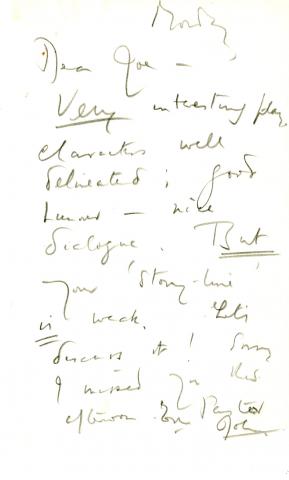 Monday
Dear Joe –
Very interesting play,
characters well
delineated; good
humour – nice
dialogue. But
your 'story-line'
is weak. Let's
discuss it! Sorry
I missed you this
afternoon
John